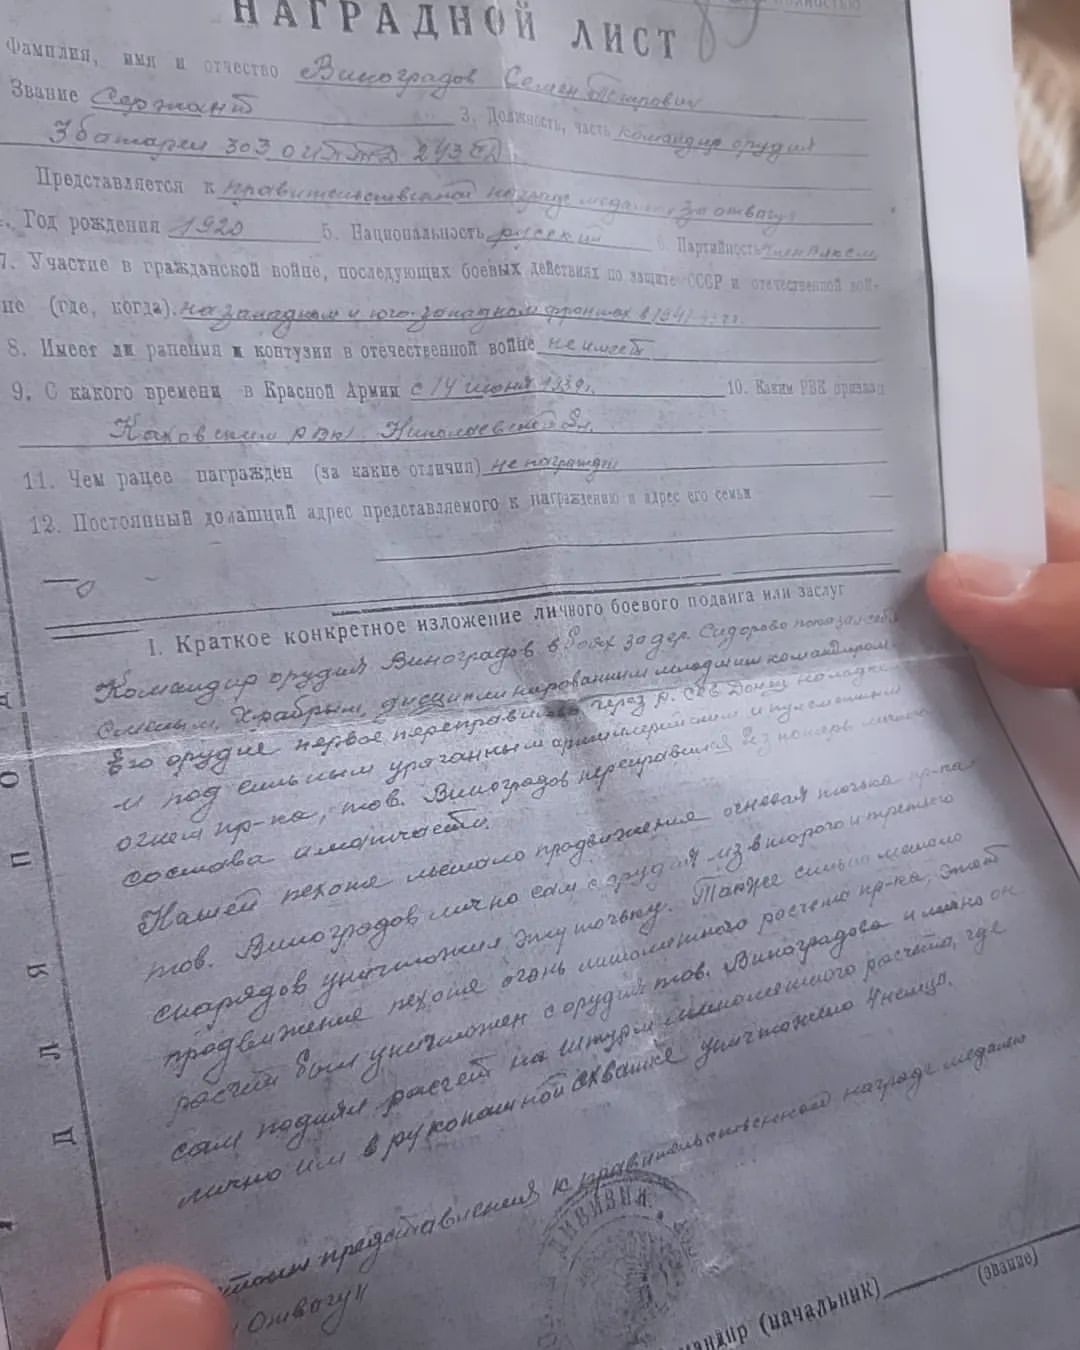 НАГРАДНОЙ ЛИСТ
Фамилия, имя и отчество Виноградов Семен Петрович
Звание Сержант 3. Должность, часть командир орудия
3 батареи 303 243 СД
Представляется к правительственной награде медалью за отвагу
Год рождения 1920 5. Национальность русский 6. Партийность член ВЛКСМ
7. Участие в гражданской войне, последующих боевых действиях по защите СССР и отечественной вой-
не (где, когда). на западном и юго-западном фронтах в 1941
8. Имеет ли ранения и контузии в отечественной войне не имеет
9. С какого времени в Красной Армии с 14 июня 1939г. 10. Каким РВК призван
Каховским РВК Николаевской
11. Чем ранее награжден (за какие отличия) не награжден
12. Постоянный домашний адрес представляемого к награждению и адрес его семьи
I. Краткое конкретное изложение личного боевого подвига или заслуг
Командир орудия Виноградов в боях за дер. Сидорово показал себя
смелым, храбрым, дисциплинированным младшим командиром.
Его орудие первое переправилось через р. Сев Донец
и под сильным ураганным артиллерийским и пулеметным
огнем пр-ка, тов. Виноградов переправился
состава и матчасти.
Нашей пехоте мешала продвижения огневая точка пр-ка
тов. Виноградов лично сам с орудия из второго и третьего
снарядов уничтожил эту точку. Также сильно мешало
продвижение пехоте огонь минометного расчета пр-ка, этот
расчет был уничтожен с орудия тов. Виноградова и лично он
сам поднял расчет на штурм минометного расчета, где
лично им в рукопашной схватке уничтожено 4 немца.
представления к правительственной награде медалью
Отвагу"
ДИВИЗИЯ
(начальник)
(звание)
ДЛЯ ПОД